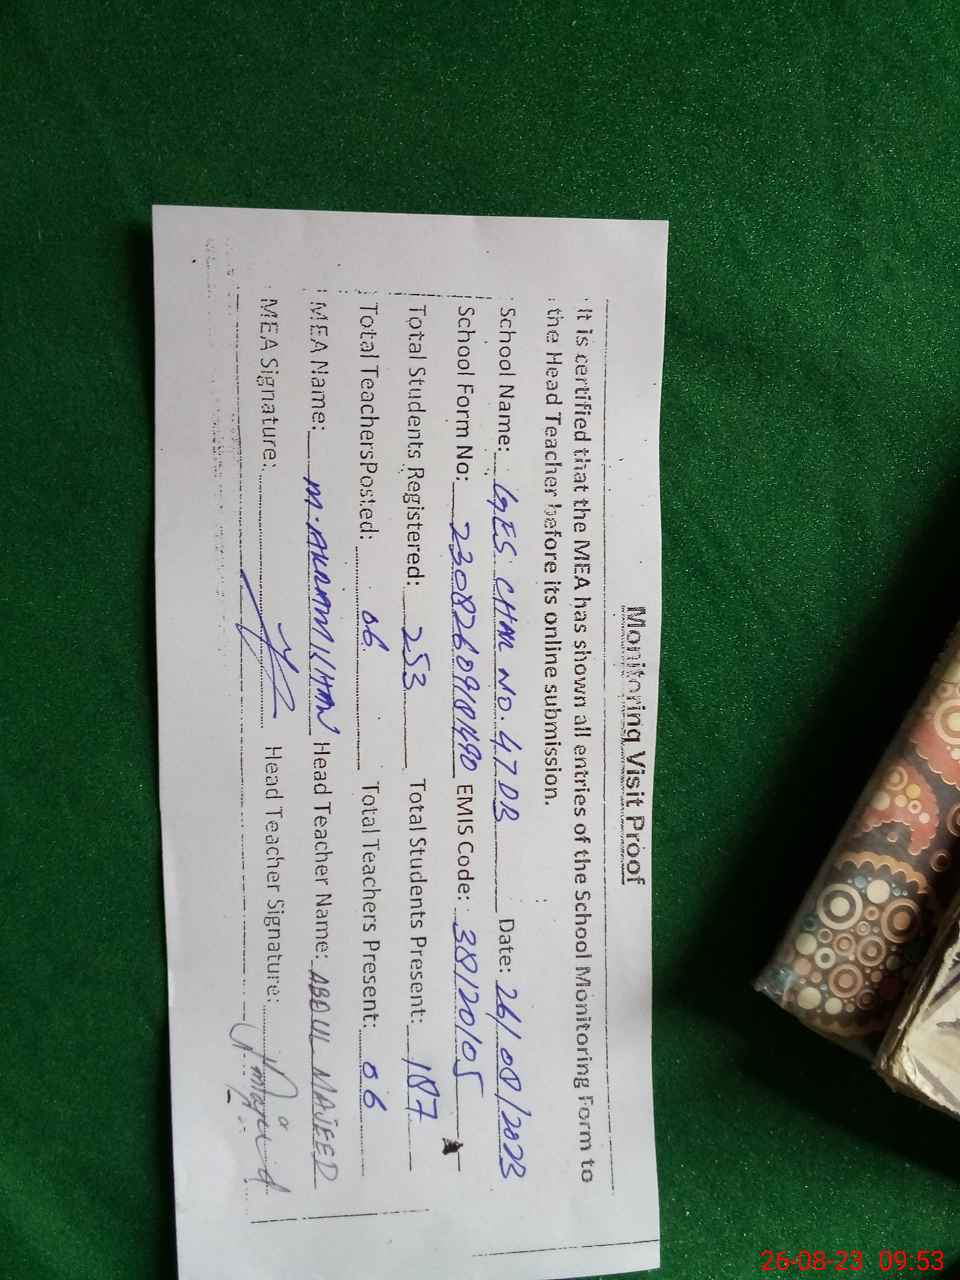 Monitoring Visit Proof
It is certified that the MEA has shown all entries of the School Monitoring Form to
the Head Teacher before its online submission.
School Name: GES CHAK NO. 47 DB Date: 26/08/2023
School Form No: 230826091490 EMIS Code: 38120105
Total Students Registered: 253 Total Students Present: 187
Total TeachersPosted: 06 Total Teachers Present: 06
MEA Name: M. AKRAM KHAN Head Teacher Name: ABDUL MAJEED
MEA Signature: Head Teacher Signature:
26-08-23 09.53